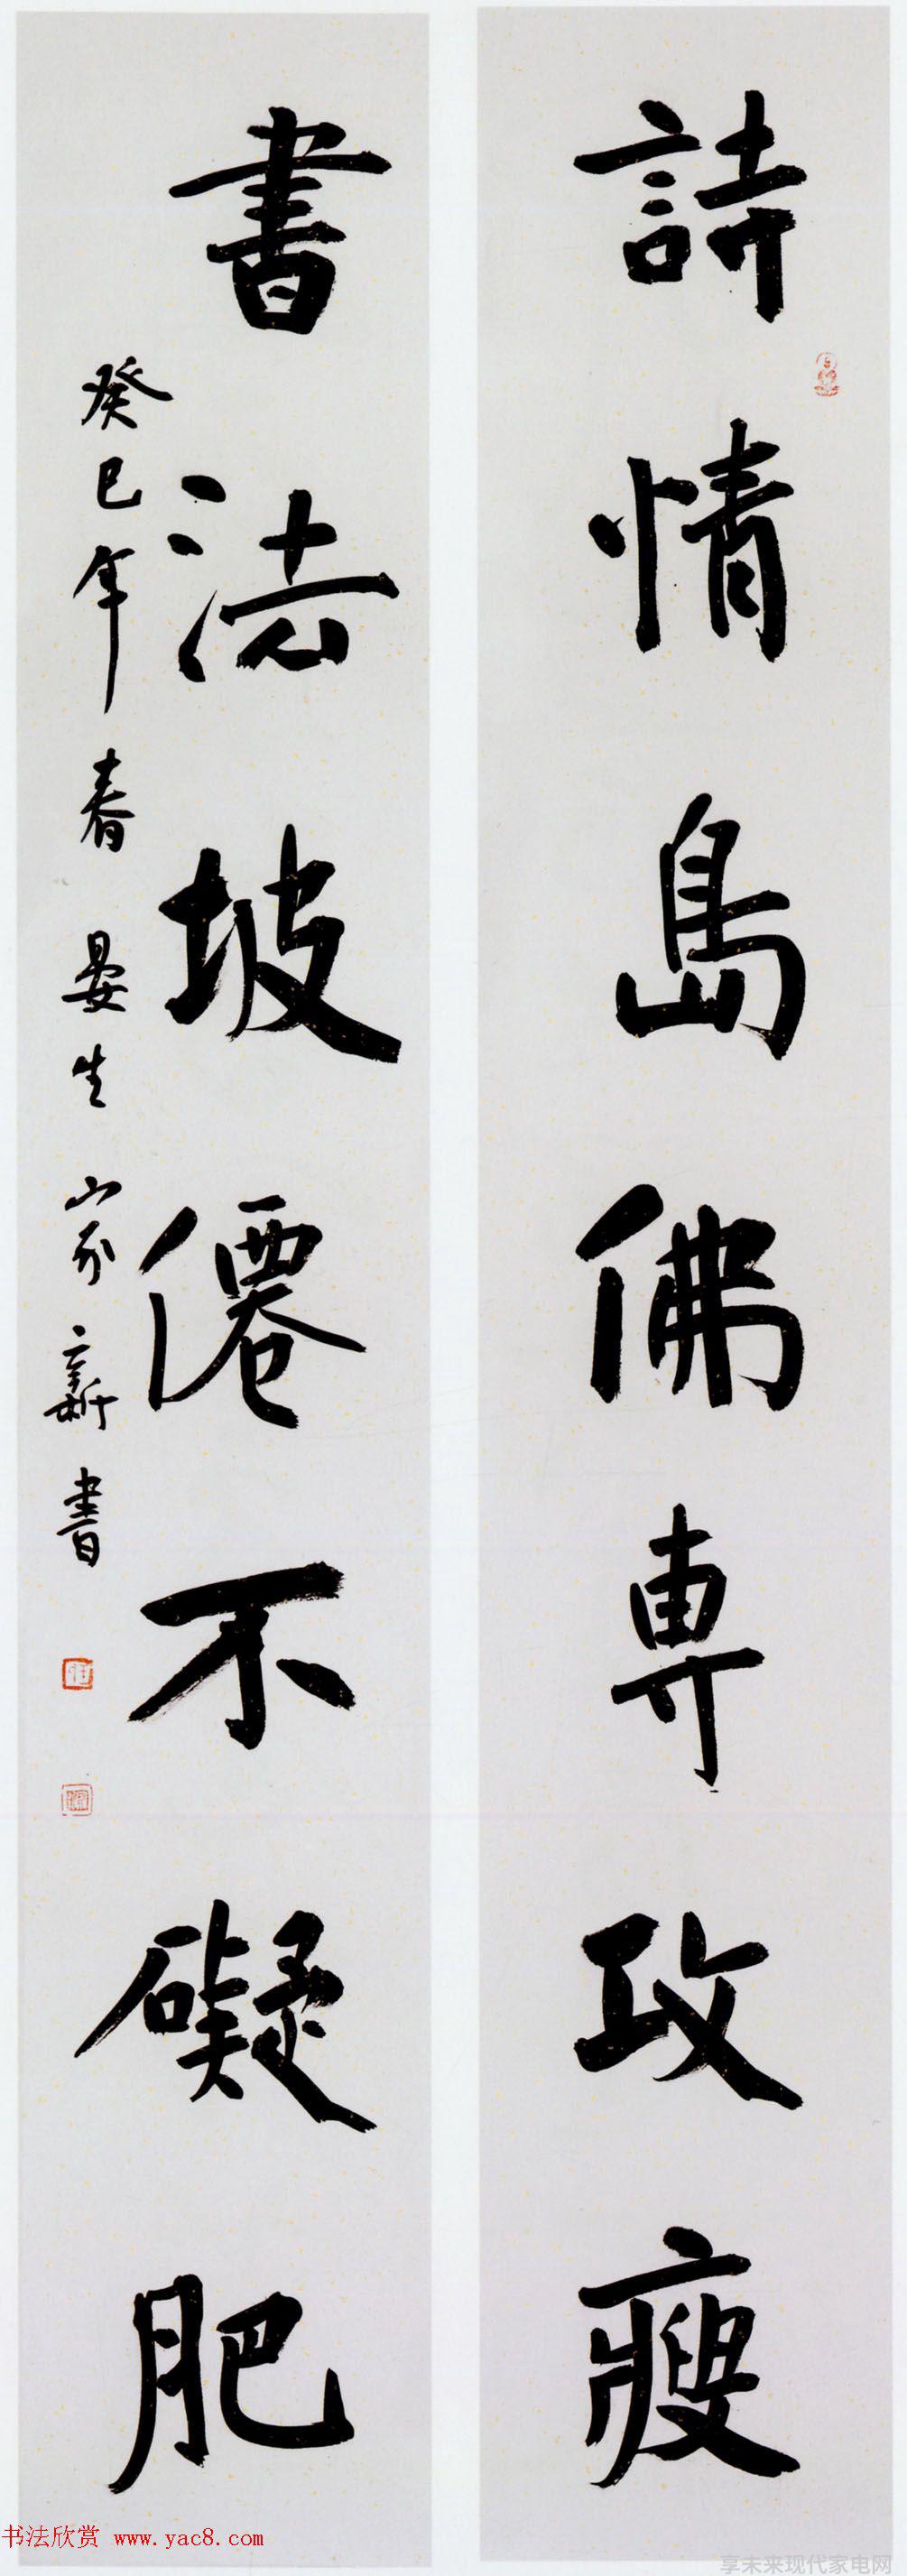 詩情島佛専攻瘦
書法坡僊不礙肥
癸巳年春晏生家新書
书法欣赏 www.yac8.com
享未来现代家电网